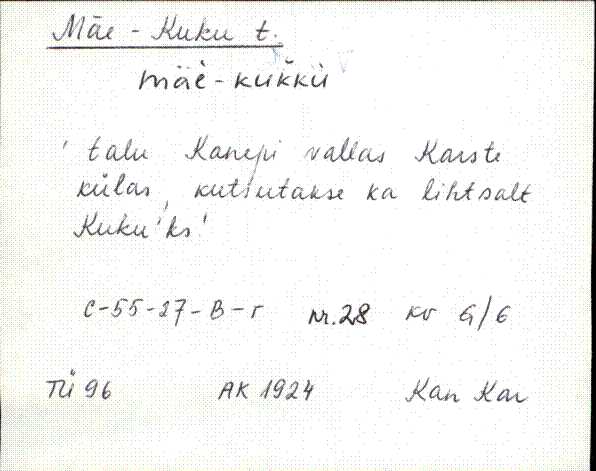 Mäe - Kuku t.
mäe - kukkü
' talu Kanepi vallas Karste
külas, kutsutakse ka lihtsalt
Kuku'ks'
C-55-27-B-г nr.28 kv G/6
TÜ 96 AK 1924 Kan Kar